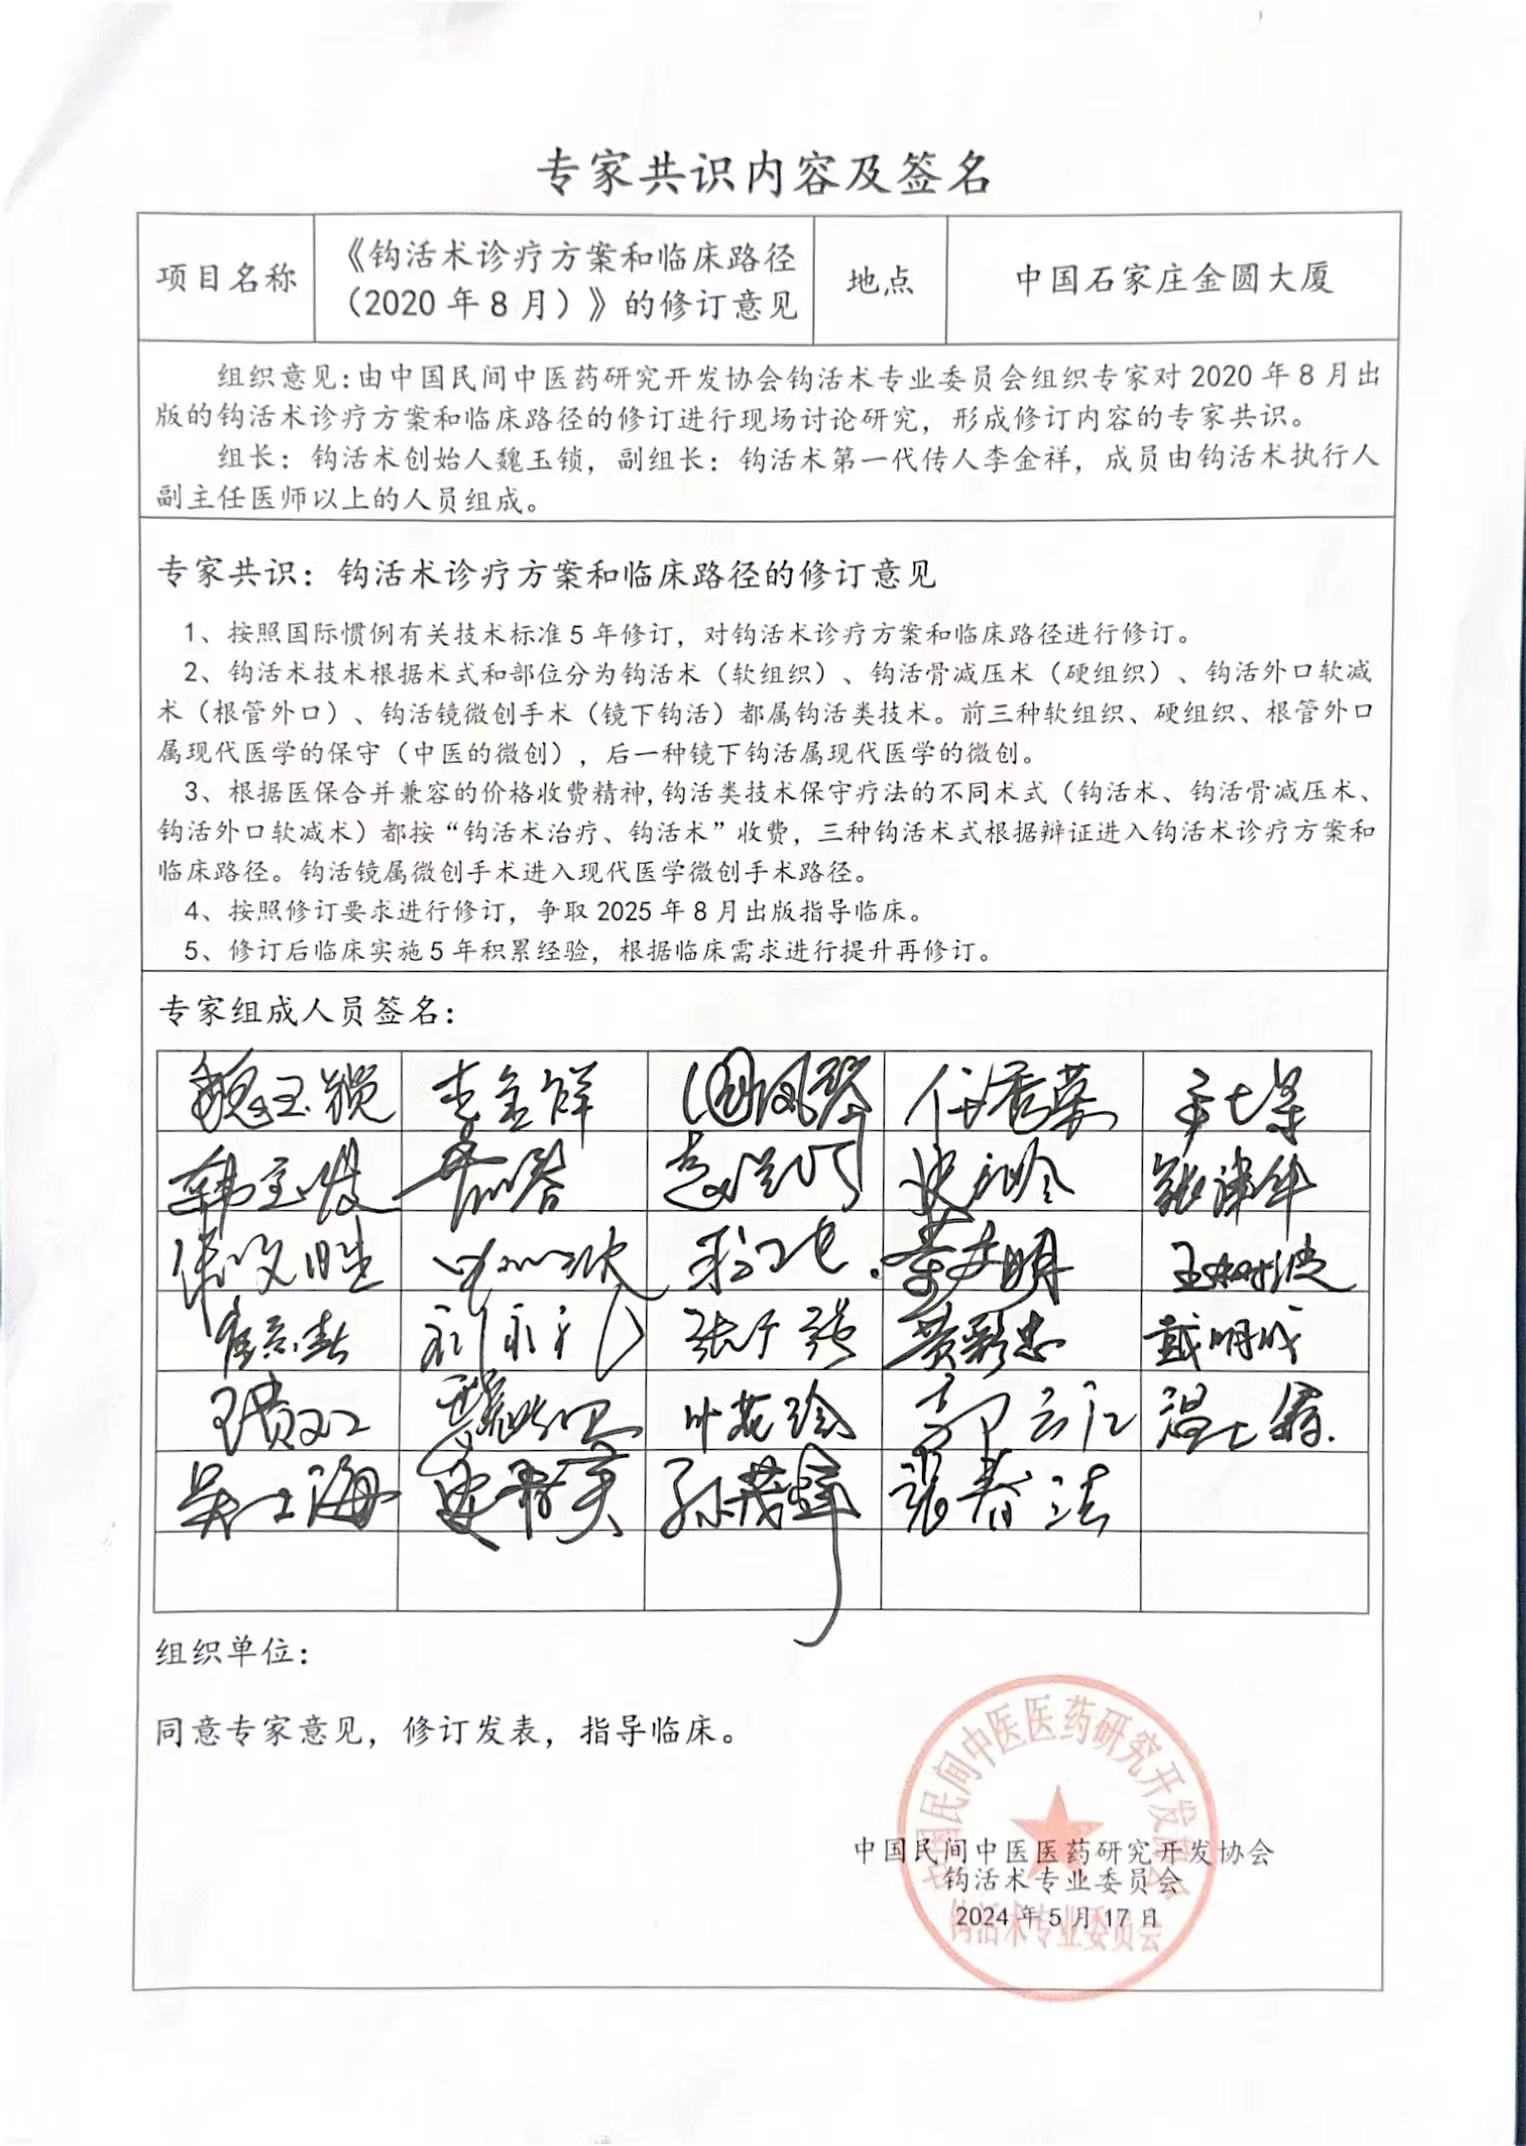 专家共识内容及签名
项目名称
《钩活术诊疗方案和临床路径
（2020 年 8 月）》的修订意见
地点
中国石家庄金圆大厦
组织意见:由中国民间中医药研究开发协会钩活术专业委员会组织专家对 2020 年 8 月出
版的钩活术诊疗方案和临床路径的修订进行现场讨论研究，形成修订内容的专家共识。
组长：钩活术创始人魏玉锁，副组长：钩活术第一代传人李金祥，成员由钩活术执行人
副主任医师以上的人员组成。
专家共识：钩活术诊疗方案和临床路径的修订意见
1、按照国际惯例有关技术标准 5 年修订，对钩活术诊疗方案和临床路径进行修订。
2、钩活术技术根据术式和部位分为钩活术（软组织）、钩活骨减压术（硬组织）、钩活外口软减
术（根管外口）、钩活镜微创手术（镜下钩活）都属钩活类技术。前三种软组织、硬组织、根管外口
属现代医学的保守（中医的微创），后一种镜下钩活属现代医学的微创。
3、根据医保合并兼容的价格收费精神,钩活类技术保守疗法的不同术式（钩活术、钩活骨减压术、
钩活外口软减术）都按“钩活术治疗、钩活术”收费，三种钩活术式根据辩证进入钩活术诊疗方案和
临床路径。钩活镜属微创手术进入现代医学微创手术路径。
4、按照修订要求进行修订，争取 2025 年 8 月出版指导临床。
5、修订后临床实施 5 年积累经验，根据临床需求进行提升再修订。
专家组成人员签名：
魏玉锁 李金祥 国凤琴
王树波
张广强 黄彩忠 戴明成
叶花玲 郭云江 温士奇
吴士海 孙茂峰 裴春法
组织单位：
同意专家意见，修订发表，指导临床。
中国民间中医医药研究开发协会
钩活术专业委员会
2024 年 5 月 17 日
中国民间中医医药研究开发协会
钩活术专业委员会